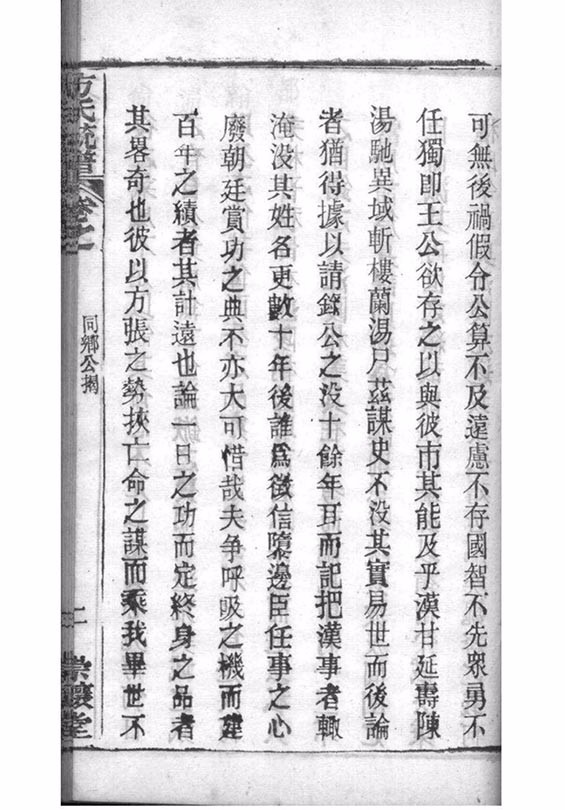 可無後禍假令公算不及遠慮不存國智不先衆勇不
任獨即王公欲存之以與彼市其能及乎漢甘延壽陳
湯馳異域斬樓蘭湯尸茲謀史不没其實易世而後論
者猶得據以請錄公之没十餘年耳而記把漢事者輙
淹没其姓名更數十年後誰爲徵信隳邊臣任事之心
廢朝廷賞功之典不亦大可惜哉夫争呼吸之機而建
百年之績者其計遠也論一日之功而定終身之品者
其畧奇也彼以方張之勢挾亡命之謀而乘我畢世不
方氏統譜 卷之
同鄉公揭
二
崇讓堂